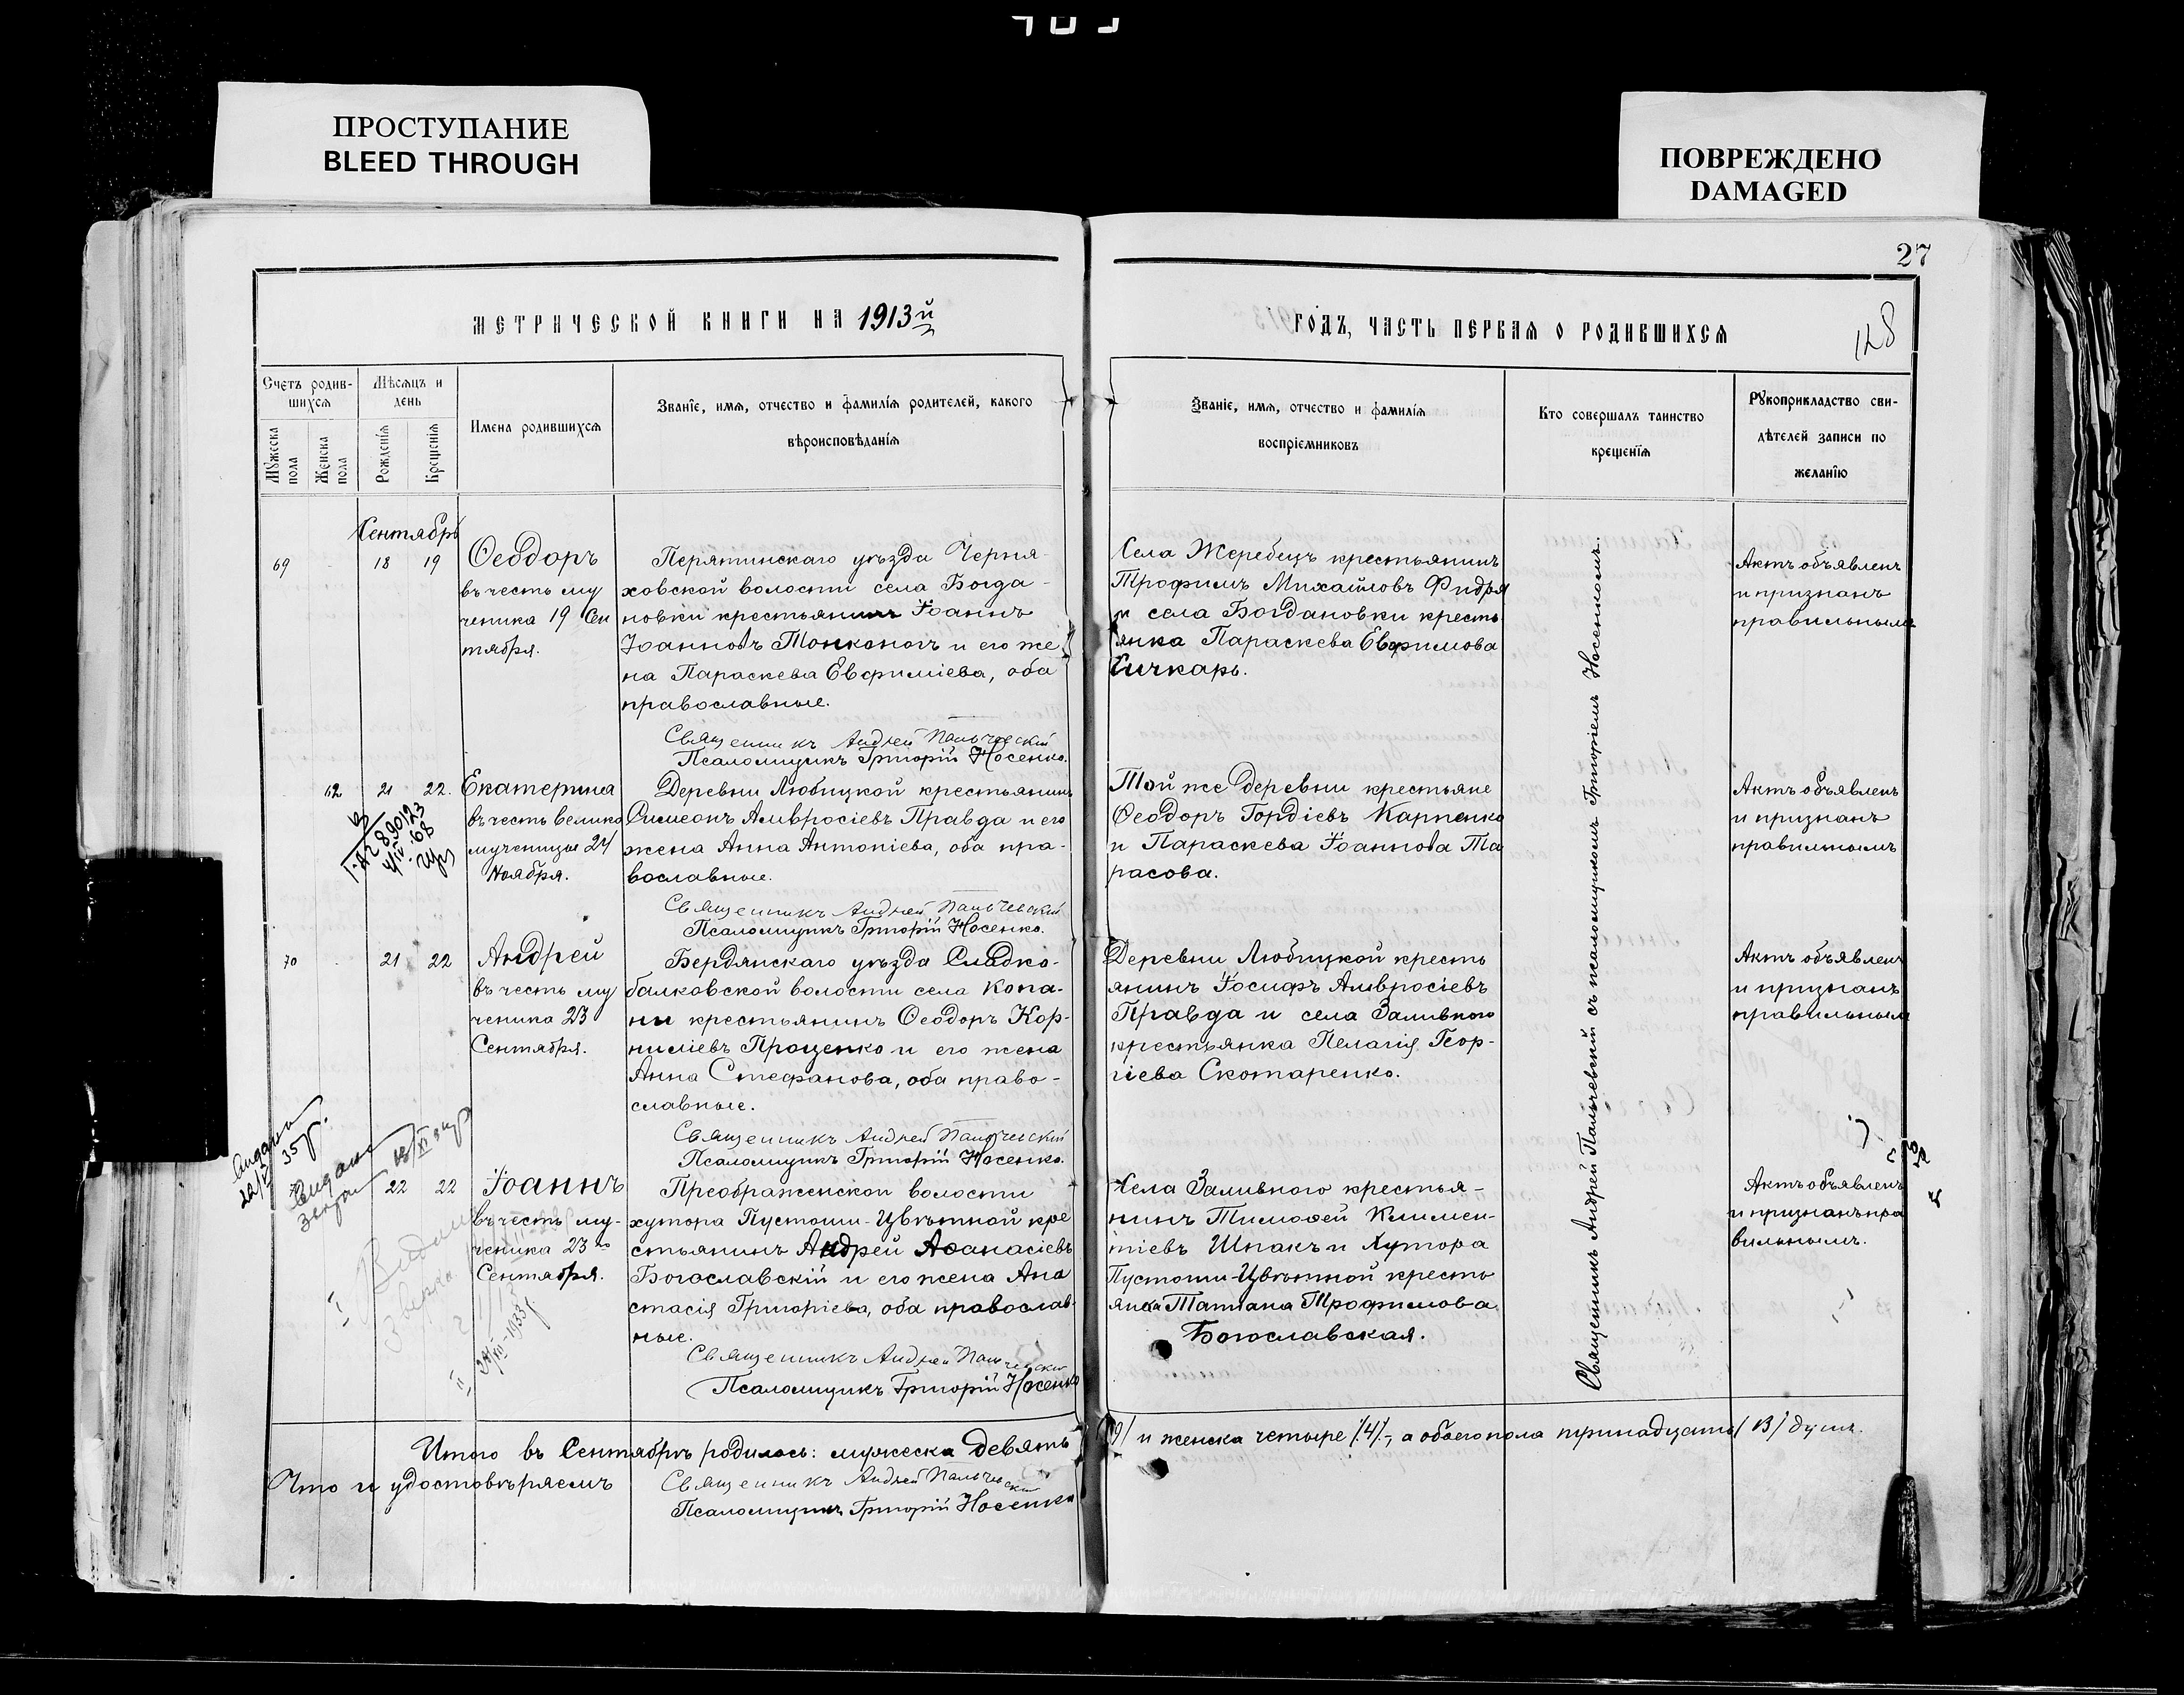 ПРОСТУПАНИЕ
BLEED THROUGH
ПОВРЕЖДЕНО
DAMAGED
27
128
МЕТРИЧЕСКОЙ КНИГИ НА 1913й
ГОДЪ, ЧАСТЬ ПЕРВАЯ О РОДИВШИХСЯ
Счетъ родив-
шихся
Мѣсяцъ и
день
Мужеска
пола
Женска
пола
Рожденія
Крещенія
Имена родившихся
Званіе, имя, отчество и фамилія родителей, какого
вѣроисповѣданія
Званіе, имя, отчество и фамилія
воспріемниковъ
Кто совершалъ таинство
крещенія
Рукоприкладство сви-
дѣтелей записи по
желанію
Сентябрь
69 18 19
Ѳеодоръ
въ честь му
ченика 19 Сен
тября.
Пирятинскаго уѣзда Черня-
ховской волости села Богда-
новки крестьянинъ Іоаннъ
Іоанновъ Тонконогъ и его же
на Параскева Евфиміева, оба
православные.
Священникъ Андрей Пальчевскій
Псаломщикъ Григорій Носенко.
Села Жеребецъ крестьянинъ
Трофимъ Михайловъ Фидря
и села Богдановки кресть
янка Параскева Евфимова
Сичкарь.
Актъ объявленъ
и признанъ
правильнымъ
62 21 22.
Екатерина
въ честь велико
мученицы 24
Ноября.
Деревни Любицкой крестьянинъ
Симеонъ Амвросіевъ Правда и его
жена Анна Антоніева, оба пра-
вославные.
Священникъ Андрей Пальчевскій
Псаломщикъ Григорій Носенко.
Той же деревни крестьяне
Ѳеодоръ Гордіевъ Карпенко
и Параскева Іоаннова Та
расова.
Актъ объявленъ
и признанъ
правильнымъ
70 21 22
Андрей
въ честь му
ченика 23
Сентября.
Бердянскаго уѣзда Сладко-
балковской волости села Копа-
ни крестьянинъ Ѳеодоръ Кор-
ниліевъ Проценко и его жена
Анна Стефанова, оба право-
славные.
Священникъ Андрей Пальчевскій
Псаломщикъ Григорій Носенко.
Деревни Любицкой кресть
янинъ Іосифъ Амвросіевъ
Правда и села Заливного
крестьянка Пелагія Геор-
гіева Скотаренко.
Актъ объявленъ
и признанъ
правильнымъ
22 22
Іоаннъ
въ честь му-
ченика 23го
Сентября.
Преображенской волости
хутора Пустоши-Цвѣтной кре
стьянинъ Андрей Аѳанасіевъ
Богославскій и его жена Ана
стасія Григоріева, оба православ-
ные.
Священникъ Андрей Пальчевскій
Псаломщикъ Григорій Носенко
Села Заливного крестья-
нинъ Тимоѳей Климен-
тіевъ Шпакъ и хутора
Пустоши-Цвѣтной кресть
янка Татіана Трофимова
Богославская.
Актъ объявленъ
и признанъ пра
вильнымъ.
Священникъ Андрей Пальчевскій съ псаломщикомъ Григоріемъ Носенкомъ.
Итого въ Сентябрѣ родилось: мужеска девять /9/ и женска четыре /4/-, а обоего пола тринадцать /13/ душъ.
Что и удостовѣряемъ
Священникъ Андрей Пальчевскій
Псаломщикъ Григорій Носенко